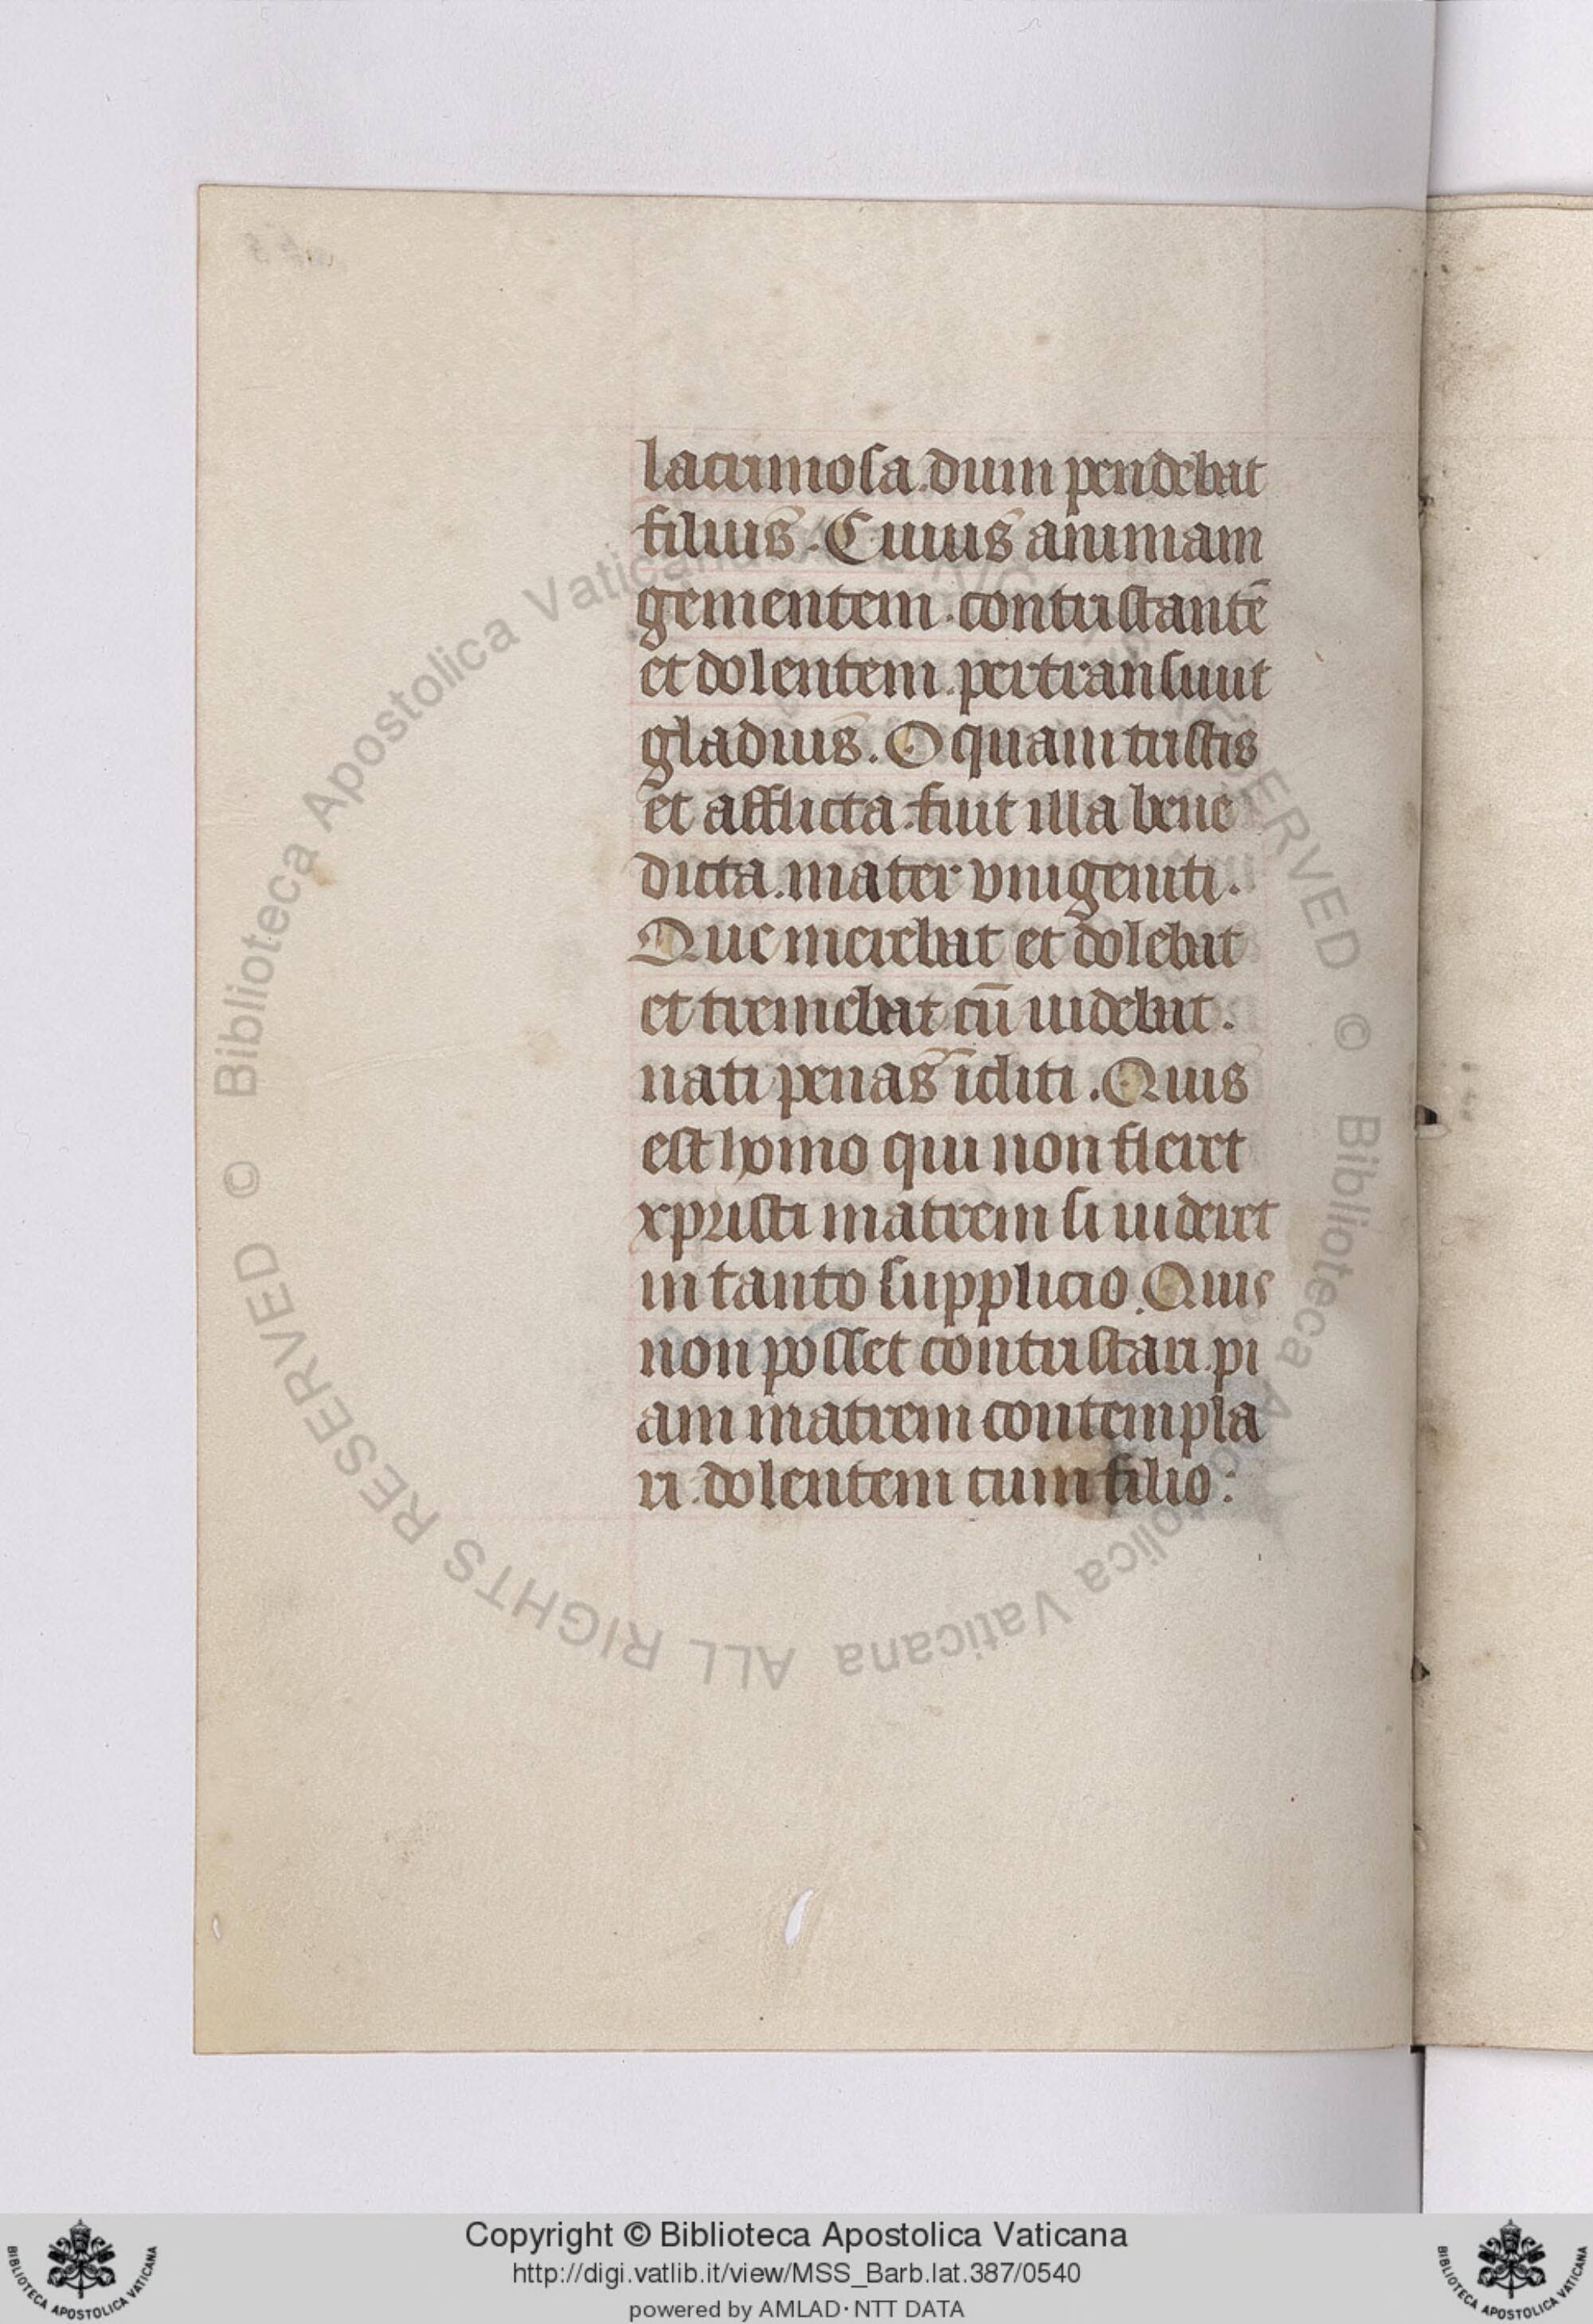 lacrimosa. dum pendebat
filius. Cuius animam
gementem. contristantē
et dolentem. pertransiuit
gladius. O quam tristis
et afflicta. fuit illa bene
dicta. mater vnigeniti.
Que merebat et dolebat
et tremebat cū uidebat.
nati penas īcliti. Quis
est homo qui non fleret
xpristi matrem si uideret
in tanto supplicio. Quis
non posset contristari. pi
am matrem contempla
ri. dolentem cum filio:
© Biblioteca Apostolica Vaticana ALL RIGHTS RESERVED © Biblioteca Apostolica Vaticana ALL RIGHTS RESERVED
Copyright © Biblioteca Apostolica Vaticana
http://digi.vatlib.it/view/MSS_Barb.lat.387/0540
powered by AMLAD·NTT DATA
BIBLIOTECA APOSTOLICA VATICANA
BIBLIOTECA APOSTOLICA VATICANA